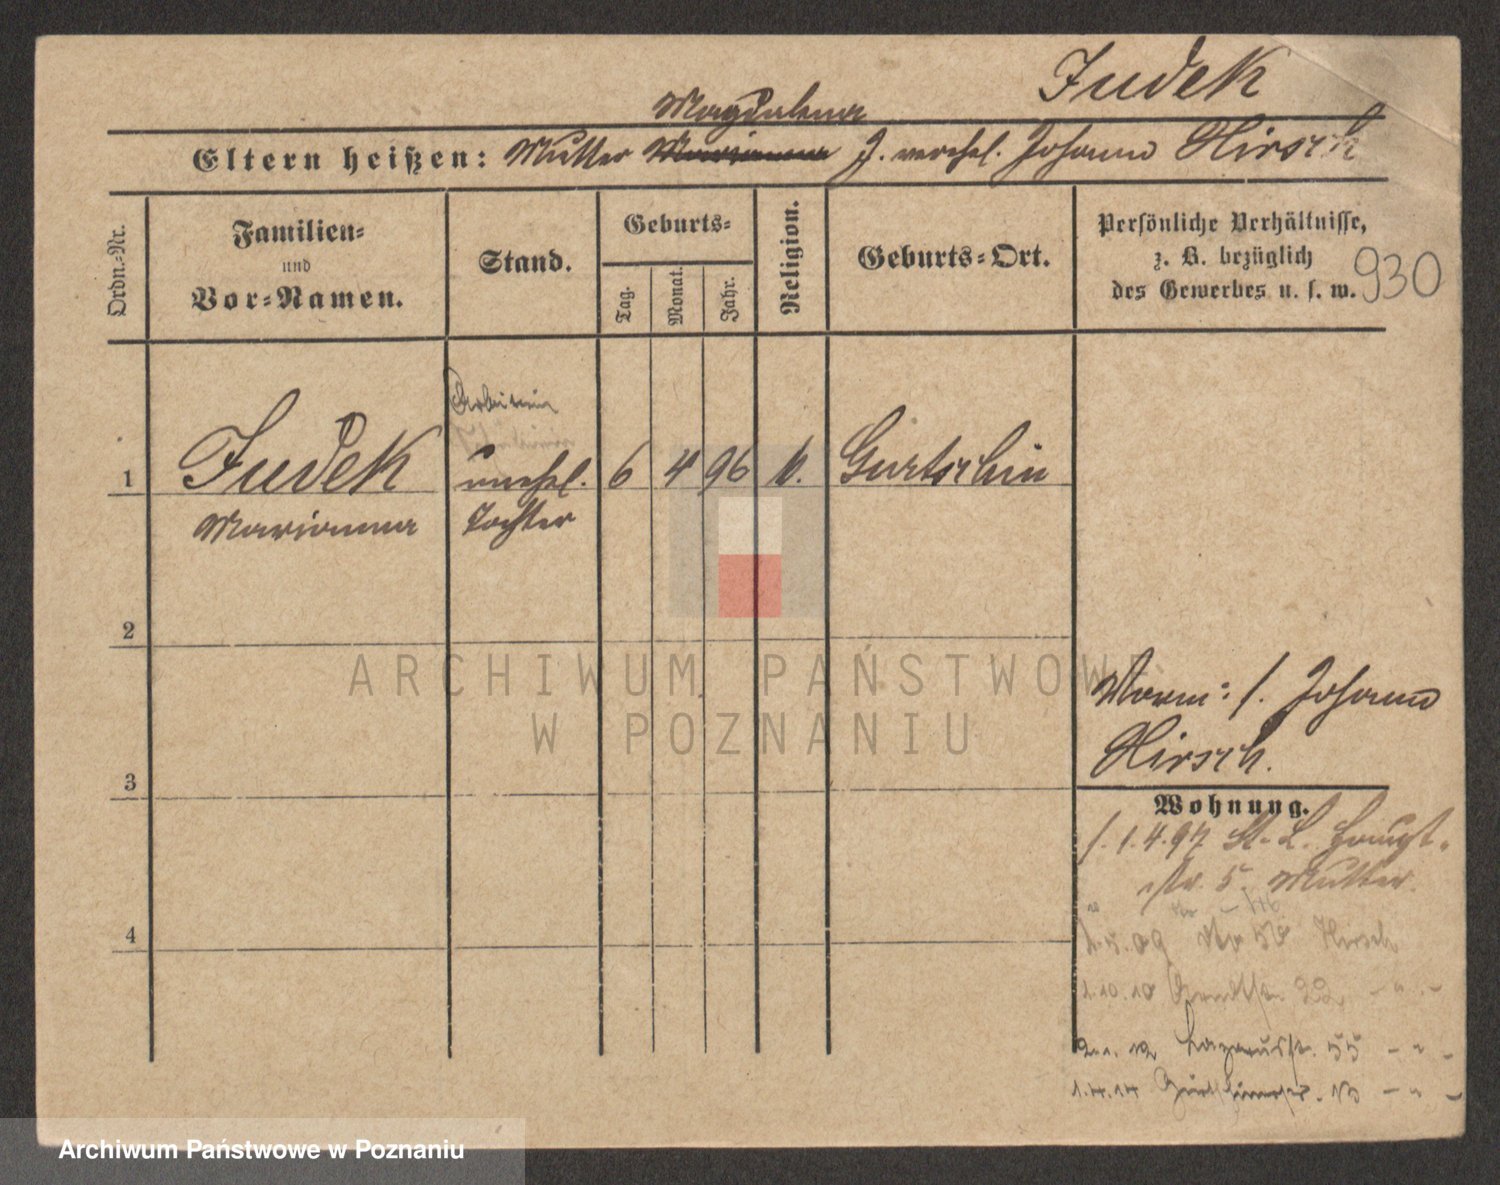 Judek
Magdalena
Eltern heißen: Mutter Marianna J. verehel. Johann Hirsch
Ordn.-Nr.
Familien-
und
Vor-Namen.
Stand.
Geburts-
Tag.
Monat.
Jahr.
Religion.
Geburts-Ort.
Persönliche Verhältnisse,
z. B. bezüglich
des Gewerbes u. s. w.
930
Arbeiterin
1 Judek unehel. 6 4 96 k. Gurtschin
Marianna Tochter
2
3
4
ARCHIWUM PAŃSTWOWE
W POZNANIU
Vorm: s. Johann
Hirsch.
Wohnung.
1.4.97 St. L. Haupt-
str. 5. Mutter
50 Hirsch
1.10.10 22 - " -
2.1.12 Lazarusstr. 55 - " -
1.4.14 - " -
Archiwum Państwowe w Poznaniu